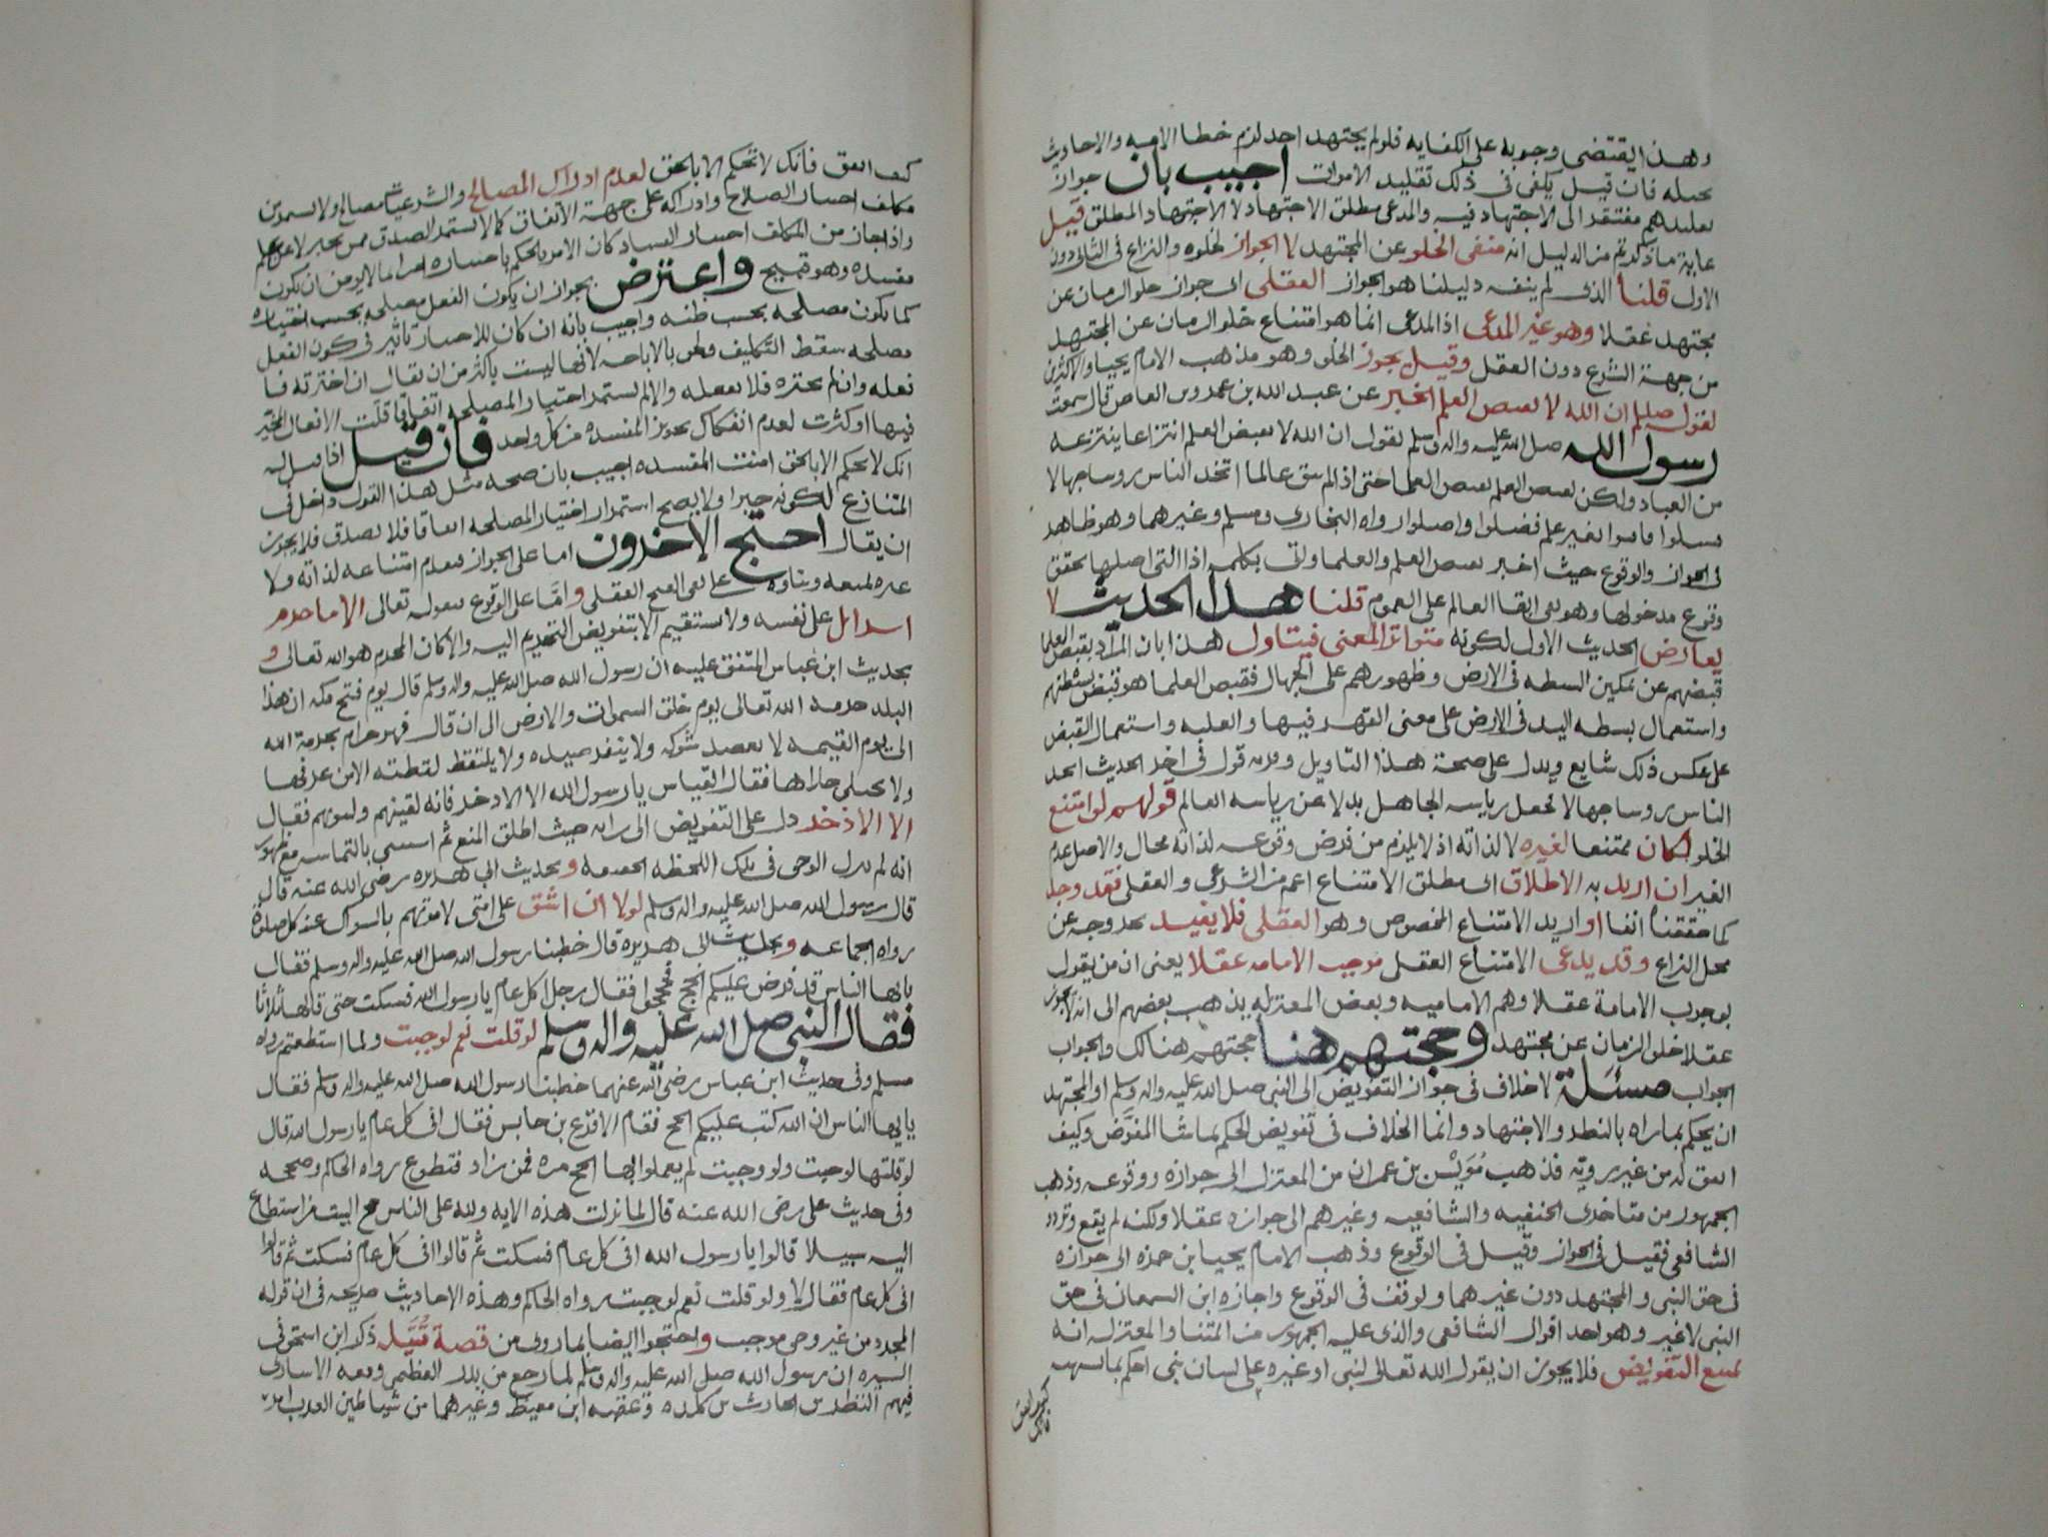 وهذا يقتضى وجوبه على الكفايه فلو لم يجتهد احد لزم خطا الامه والاحاديث
تحيله فان قيل يكفى فى ذلك تقليد الاموات اجيب بان جواز
تقليدهم مفتقر الى الاجتهاد فيه والمدعى مطلق الاجتهاد لا الاجتهاد المطلق قيل
غاية ما ذكرتم من الدليل انه منفى الخلو عن المجتهد لا الجواز لخلوه والنزاع فى الثانى دون
الاول قلنا الذى لم ينفه دليلنا هو الجواز العقلى اى جواز خلو الزمان عن
مجتهد عقلا وهو غير المدعى اذ المدعى انما هو امتناع خلو الزمان عن المجتهد
من جهة الشرع دون العقل وقيل يجوز الخلو وهو مذهب الامام يحيى والاكثرين
لقول صلعم ان الله لا يقبض العلم الخبر عن عبد الله بن عمرو بن العاص قال سمعت
رسول الله صلى الله عليه واله وسلم يقول ان الله لا يقبض العلم انتزاعا ينتزعه
من العباد ولكن يقبض العلم بقبض العلما حتى اذا لم يبق عالما اتخذ الناس روسا جهالا
فسئلوا فافتوا بغير علم فضلوا واضلوا رواه البخارى ومسلم وغيرهما وهو ظاهر
فى الجواز والوقوع حيث اخبر بقبض العلم والعلما واتى بكلمة اذا التى اصلها تحقق
وقوع مدخولها وهو نفى ابقا العالم على العموم قلنا هذا الحديث لا
يعارض الحديث الاول لكونه متواتر المعنى فيتاول هذا بان المراد بقبض العلما
قبضهم عن تمكين البسطه فى الارض وظهورهم على الجهال فقبض العلما هو قبض بسطتهم
واستعمال بسطه اليد فى الارض على معنى القهر فيها والغلبه واستعمال القبض
على عكس ذلك شايع ويدل على صحة هذا التاويل وقوته قول فى اخر الحديث اتخذ
الناس روسا جهالا تجعل رياسه الجاهل بدلا عن رياسه العالم قولهم لو امتنع
الخلو لكان ممتنعا لغيره لا لذاته اذ لا يلزم من فرض وقوعه لذاته محال والاصل عدم
الغير ان اريد به الاطلاق اى مطلق الامتناع اعم من الشرعى والعقلى فقد وجد
كما حققناه انفا او اريد الامتناع المخصوص وهو العقلى فلا يفيد بعد وجه عن
محل النزاع وقد يدعى الامتناع العقل موجب الامامه عقلا يعنى ان من يقول
بوجوب الامامة عقلا وهم الاماميه وبعض المعتزله يذهب بعضهم الى انه لا يجوز
عقلا خلو الزمان عن مجتهد وحجتهم هنا حجتهم هنالك والجواب
الجواب مسئلة لا خلاف فى جواز التفويض الى النبى صلى الله عليه واله وسلم او المجتهد
ان يحكم بما راه بالنظر والاجتهاد وانما الخلاف فى تفويض الحكم بما شا المفوض وكيف
اتفق له من غير رويه فذهب مويس بن عمران من المعتزله الى جوازه ووقوعه وذهب
الجمهور من متاخرى الحنفيه والشافعيه وغيرهم الى جوازه عقلا ولكنه لم يقع وتردد
الشافعى فقيل فى الجواز وقيل فى الوقوع وذهب الامام يحيى بن حمزه الى جوازه
فى حق النبى والمجتهد دون غيرهما وتوقف فى الوقوع واجازه ابن السمعان فى حق
النبى لا غير وهو احد اقوال الشافعى والذى عليه الجمهور من ائمتنا والمعتزله انه
يمتنع التفويض فلا يجوز ان يقول الله تعالى لنبى او غيره على لسان نبى احكم بما شئت
كيف اتفق
فانك
كيف اتفق فانك لا تحكم الا بالحق لعدم ادراك المصالح والشرعيات مصالح ولا يستمر من
مكلف اختيار الصلاح وادراكه على جهة الاتفاق كما لا يستمر الصدق ممن يخبر لا عن علم
واذا جاز من المكلف اختيار الفساد كان الامر بالحكم باختياره امرا بما لا يومن ان يكون
مفسده وهو قبيح واعترض بجواز ان يكون الفعل مصلحه بحسب اختياره
كما يكون مصلحه بحسب ظنه واجيب بانه ان كان للاختيار تاثير فى كون الفعل
مصلحه سقط التكليف ولحق بالاباحه لانها ليست باكثر من ان يقال ان اخترته فا
فعله وان لم تختره فلا تفعله والا لم يستمر اختيار المصلحه اتفاقا قلت الافعال المخير
فيها او كثرت لعدم انفكاك تجويز المفسده من كل واحد فان قيل اذا قيل له
انك لا تحكم الا بالحق امنت المفسده اجيب بان صحه مثل هذا القول داخل فى
المتنازع لكونه خبرا ولا يصح استمرار اختيار المصلحه اتفاقا فلا يصدق فلا يجوز
ان يقال احتج الاخرون اما على الجواز فبعدم امتناعه لذاته ولا
غيره يمنعه وبناوه على نفى القبح العقلى واما على الوقوع فبقوله تعالى الا ما حرم
اسرائل على نفسه ولا يستقيم الا بتفويض التحريم اليه والا كان المحرم هو الله تعالى و
بحديث ابن عباس المتفق عليه ان رسول الله صلى الله عليه واله وسلم قال يوم فتح مكه ان هذا
البلد حرمه الله تعالى يوم خلق السموات والارض الى ان قال فهو حرام بحرمة الله
الى يوم القيمه لا يعضد شوكه ولا ينفر صيده ولا يلتقط لقطته الا من عرفها
ولا يختلى خلاها فقال العباس يا رسول الله الا الاذخر فانه لقينهم ولبيوتهم فقال
الا الاذخر دل على التفويض الى رايه حيث اطلق المنع ثم استثنى بالتماسه مع ظهور
انه لم ينزل الوحى فى تلك اللحظه الخفيفه وبحديث ابى هريره رضى الله عنه قال
قال رسول الله صلى الله عليه واله وسلم لولا ان اشق على امتى لامرتهم بالسواك عند كل صلوة
رواه الجماعه وبحديث ابى هريره قال خطبنا رسول الله صلى الله عليه واله وسلم فقال
يا ايها الناس قد فرض عليكم الحج فحجوا فقال رجل اكل عام يا رسول الله فسكت حتى قالها ثلاثا
فقال النبى صلى الله عليه واله وسلم لو قلت نعم لوجبت ولما استطعتم رواه
مسلم وفى حديث ابن عباس رضى الله عنهما خطبنا رسول الله صلى الله عليه واله وسلم فقال
يا ايها الناس ان الله كتب عليكم الحج فقام الاقرع بن حابس فقال افى كل عام يا رسول الله قال
لو قلتها لوجبت ولو وجبت لم يعملوا بها الحج مره فمن زاد فتطوع رواه الحاكم وصححه
وفى حديث على رضى الله عنه قال لما نزلت هذه الايه ولله على الناس حج البيت من استطاع
اليه سبيلا قالوا يا رسول الله افى كل عام فسكت ثم قالوا افى كل عام فسكت ثم قالوا
افى كل عام فقال لا ولو قلت نعم لوجبت رواه الحاكم وهذه الاحاديث صريحه فى ان قوله
المجرد من غير وحى موجب واحتجوا ايضا بما روى من قصة قتيله ذكر ابن اسحق فى
السيره ان رسول الله صلى الله عليه واله وسلم لما رجع من بدر العظمى ومعه الاسارى
فيهم النضر بن الحارث بن كلده وعقبه ابن معيط وغيرهما من شياطين العرب